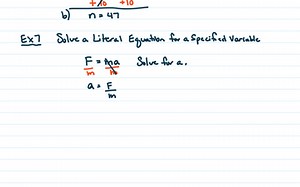 +10 +10
b) n = 47
Ex7 Solve a Literal Equation for a Specified Variable
F = ma Solve for a.
m m
a = F/m